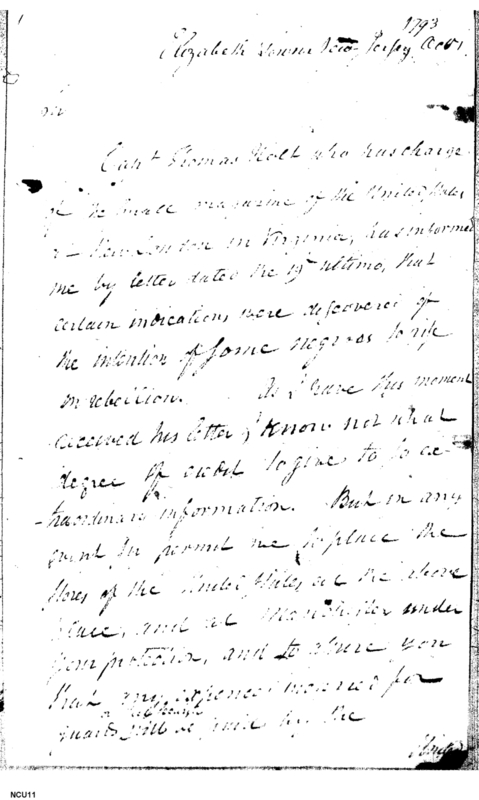 1
1793
Elizabeth Town New Jersey Oct 1
Sir
Capt Thomas Holt who has charge
of the small magazine of the United States
at New London in Virginia, has informed
me by letter dated the 19th ultimo, that
certain indications were discovered of
the intention of some negroes to rise
in rebellion. As I have this moment
received his letter I know not what
degree of credit to give to so ex
-traordinary information. But in any
event Sir permit me to place the
stores of the United States at the above
place, and at Manchester under
your protection, and to assure you
that any expences incurred for
guards will be paid by the
United
NCU11